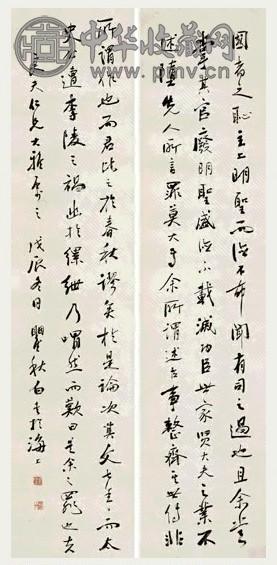 中华收藏网
國者之恥主上明聖而德不布聞有司之過也且余嘗
掌其官廢明聖盛德不載滅功臣世家賢大夫之業不
述墮先人所言罪莫大焉余所謂述故事整齊其世傳非
所謂作也而君比之於春秋謬矣於是論次其文七年而太
史公遭李陵之禍幽於縲紲乃喟然而歎曰是余之罪也夫
夫仁兄大雅屬之 戊辰冬日 瞿秋白書於海上